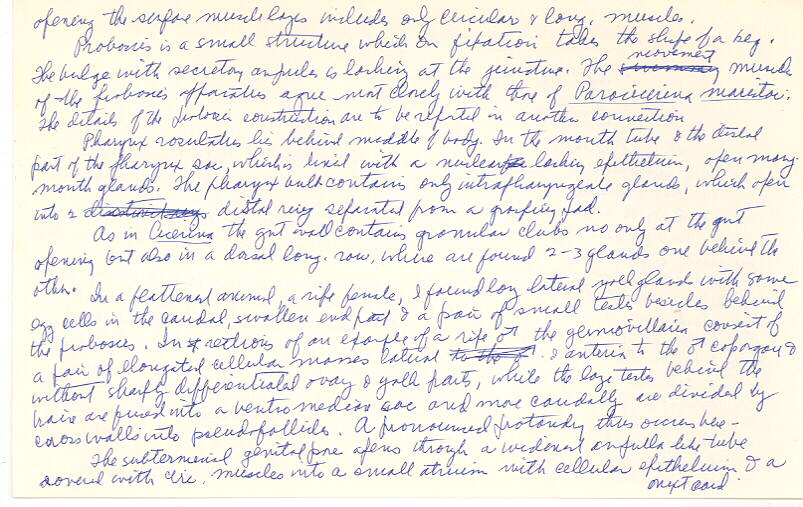 opening the surface muscle layers includes only circular & long. muscles.
Proboscis is a small structure which on fixation takes the shape of a peg.
The bulge with secretory ampules is lacking at the junctura. The movement muscles
of the proboscis apparatus agree most closely with those of Paracicerina maristoi.
The details of the proboscis construction are to be reported in another connection
Pharynx rosulatus lies behind middle of body. In the mouth tube & the distal
part of the pharynx sac, which is lined with a nuclear lacking epithelium, open many
mouth glands. The pharynx bulb contains only intrapharyngeale glands, which open
into 2 distal rings separated from a grasping pad.
As in Cicerina the gut wall contains granular clubs no only at the gut
opening but also in a dorsal long. row, where are found 2-3 glands one behind the
other. In a flattened animal, a ripe female, I found long lateral yolk glands with some
egg cells in the caudal, swollen end part & a pair of small testes vesicles behind
the proboscis. In sections of an example of a ripe ♂ the germovillaria consist of
a pair of elongated cellular masses lateral & anterior to the ♂ cop organ &
without sharply differentiated ovary & yolk parts, while the large testes behind the
brain are fused into a ventromedian sac and more caudally are divided by
cross walls into pseudofollicles. A pronounced protandry thus occurs here -
The subterminal genital pore opens through a widened ampulla like tube
covered with circ. muscles into a small atrium with cellular epithelium & a
next card